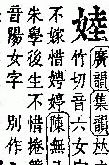 廣韻集韻
竹切音六女字
不嫁惜娉婷陳無
朱學後生不惜捲
音陽女字 別作